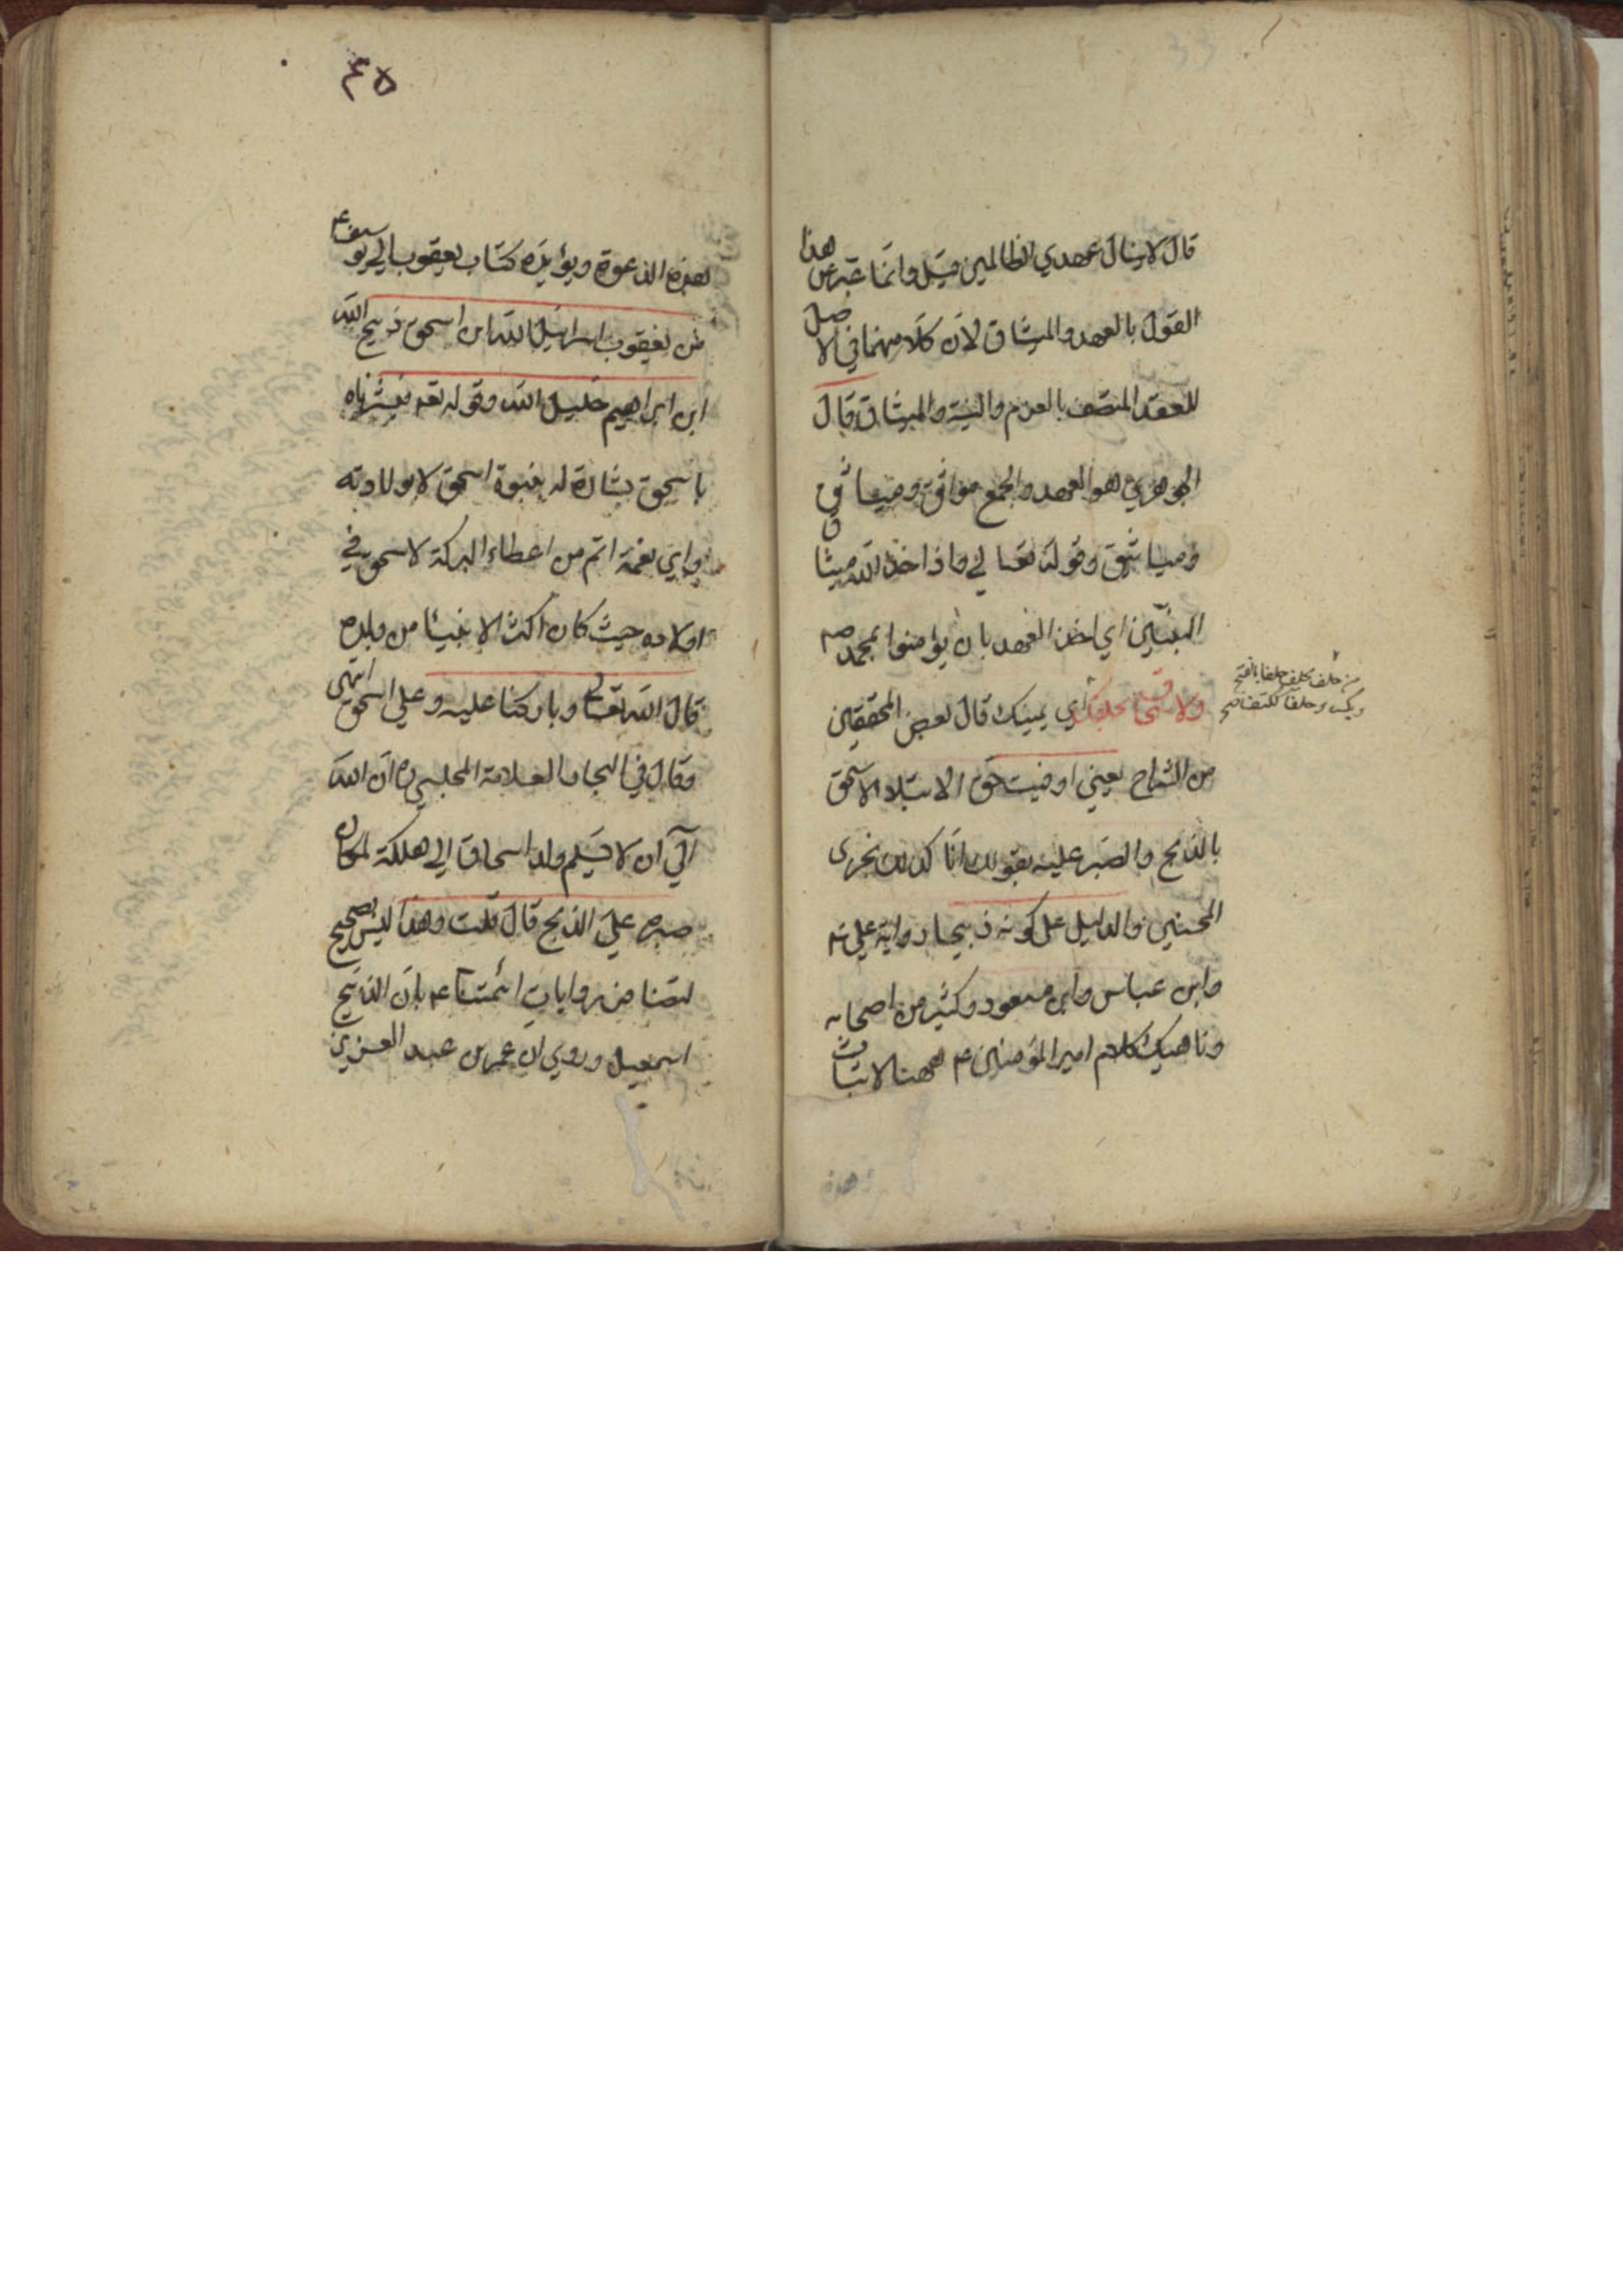 قال لاينال عهدي الظالمين قيل وانما عبر عن هذا
القول بالعهد والميثاق لان كلا منهما في الاصل
للعقد المتصف بالعزم والنية والميثاق قال
الجوهري هو العهد والجمع مواثق ومياثق
ومياثيق وقوله تعالى واذا اخذ الله ميثاق
النبيين اي اخذ العهد بان يؤامنوا بمحمد صم
ولاسحاق بحلفك اي يمينك قال بعض المحققين
من الشراح يعني اوفيت حق الابتلاء لاسحق
بالذبح والصبر عليه بقولك انا كذلك نجزى
المحسنين والدليل على كونه ذبيحا رواية علي عم
وابن عباس وابن مسعود وكثير من اصحابه
وناهيك كلام اميرالمؤمنين ع ههنا لاثبات
من حلف يحلف حلفا بالفتح
ويكسر وحلفا ككتف صح
هذه
٤٥
لهذه الدعوة ويؤيده كتاب يعقوب الى يوسف ع
من يعقوب اسرائيل الله ابن اسحق ذبيح الله
ابن ابراهيم خليل الله وقوله تعه فبشرناه
باسحق بشارة له بنبوة اسحق لا بولادته
واي نعمة اتم من اعطاء البركة لاسحق في
اولاده حيث كان اكثر الانبيا من ولده
قال الله تعالى وباركنا عليه وعلى اسحق انتهى
وقال في البحار العلامة المجلسي ره ان الله
آلى ان لا يسلم ولد اسحاق الى هلكة لمكان
صبره على الذبح قال قلت وهذا ليس بصحيح
لنا من روايات ائمتنا ع بان الذبيح
اسمعيل وروي ان عمر بن عبد العزيز